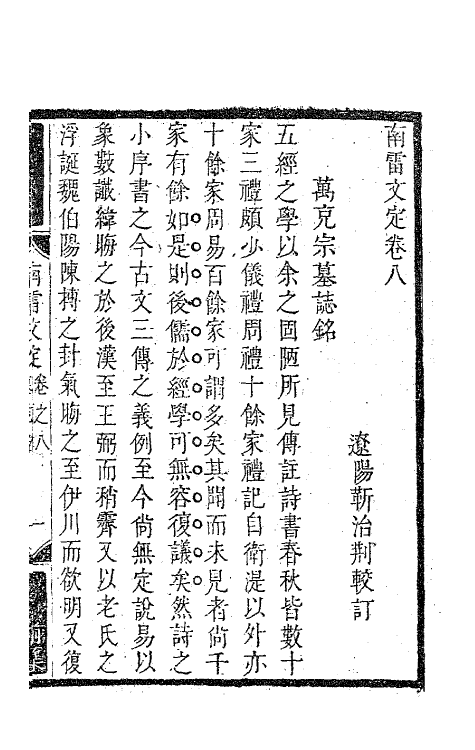 南雷文定卷八
遼陽靳治荆較訂
萬充宗墓誌銘
五經之學以余之固陋所見傳註詩書春秋皆數十
家三禮頗少儀禮周禮十餘家禮記自衛湜以外亦
十餘家周易百餘家可謂多矣其聞而未見者尚千
家有餘如是則後儒於經學可無容復議矣然詩之
小序書之今古文三傳之義例至今尚無定說易以
象數讖緯晦之於後漢至王弼而稍霽又以老氏之
浮誕魏伯陽陳摶之卦氣晦之至伊川而欲明又復
南雷文定
卷之八
一